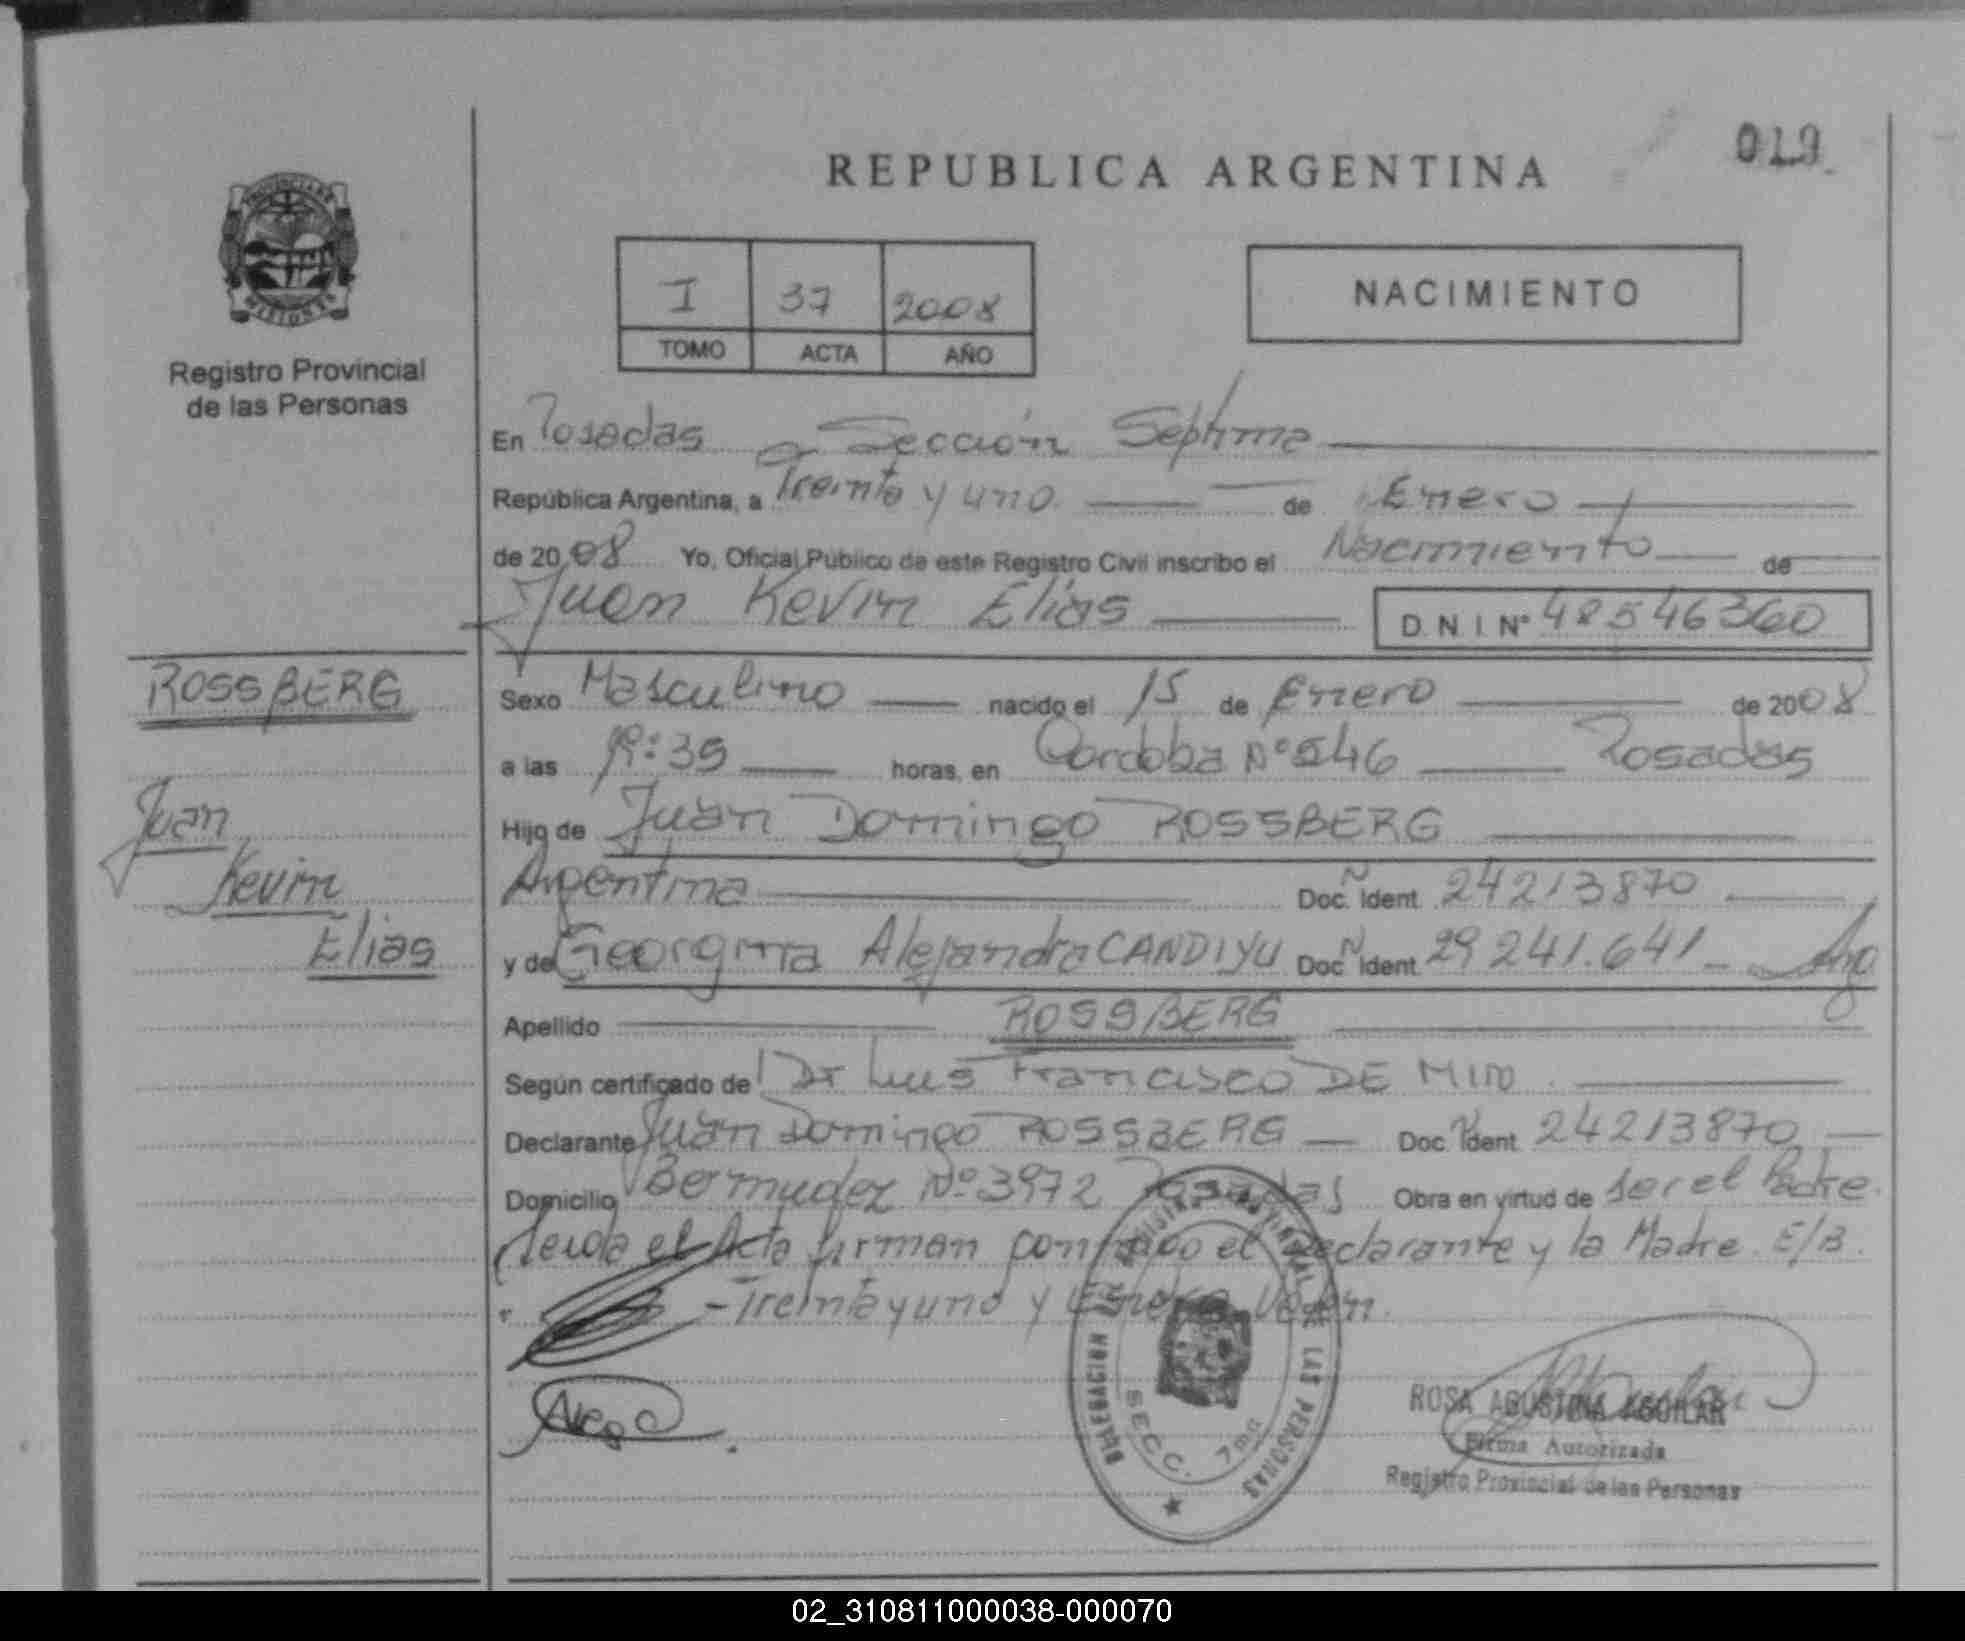 019
REPUBLICA ARGENTINA
PROVINCIA DE
MISIONES
Registro Provincial
de las Personas
I 37 2008
TOMO ACTA AÑO
NACIMIENTO
En Posadas Sección Septima
República Argentina, a Treinta y uno de Enero
de 2008 Yo, Oficial Público de este Registro Civil inscribo el Nacimiento de
Juan Kevin Elias D.N.I. Nº 48546360
ROSSBERG
Juan
Kevin
Elias
Sexo Masculino nacido el 15 de Enero de 2008
a las horas, en Cordoba Nº 546 Posadas
Hijo de Juan Domingo ROSSBERG
Argentina Doc. Ident. 24213870
y de Georgina Alejandra CANDIYU Doc. Ident. 29241.641 Arg
Apellido ROSSBERG
Según certificado de Dr Luis Francisco DE MIRO
Declarante Juan Domingo ROSSBERG Doc. Ident. 24213870
Domicilio Bermudez Nº 3972 Posadas Obra en virtud de ser el Padre.
Leida el Acta firman conmigo el Declarante y la Madre. E/B.
- Treinta y uno y Enero. Valen.
DELEGACION DEL REGISTRO PROVINCIAL DE LAS PERSONAS
SECC. 7ma
ROSA AGUSTINA AGUILAR
Firma Autorizada
Registro Provincial de las Personas
02_310811000038-000070